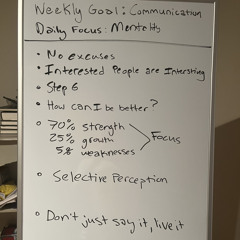 Weekly Goal: Communication
Daily Focus: Mentality
• No excuses
• Interested People are Intersting
• Step 6
• How can I be better?
• 70% strength
25% growth
5% weaknesses
Focus
• Selective Perception
• Don't just say it, live it